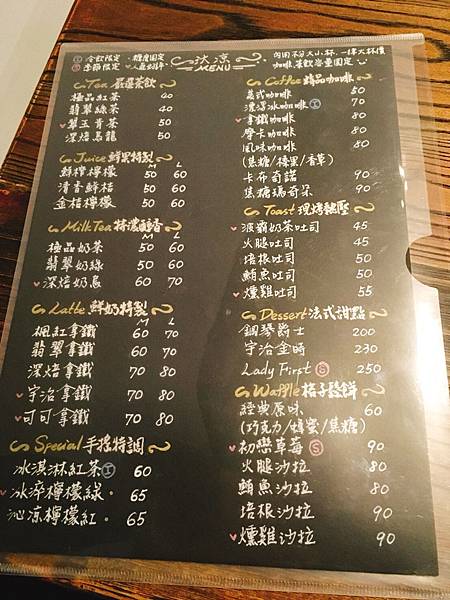 Ⓘ冷飲限定 · 糖度固定
Ⓢ季節限定 ♥人氣好評
汏涼
MENU
內用不分大小杯，一律大杯價
咖啡、茶飲容量固定
Tea 嚴選茶飲
極品紅茶 40
翡翠綠茶 40
♥翠玉青茶 50
深焙烏龍 50
Juice 鮮果特製
M L
鮮檸檸檬 50 60
清香鮮桔 50 60
金桔檸檬 50 60
Milk Tea 特濃醇香
M L
極品奶茶 50 60
翡翠奶綠 50 60
♥深焙奶烏 60 70
Latte 鮮奶特製
M L
楓紅拿鐵 60 70
翡翠拿鐵 60 70
深焙拿鐵 70 80
♥宇治拿鐵 70 80
♥可可拿鐵 70 80
Special 手搖特調
冰淇淋紅茶Ⓘ 60
♥冰淬檸檬綠· 65
沁涼檸檬紅· 65
Coffee 精品咖啡
義式咖啡 50
濃淬冰咖啡Ⓘ 70
♥拿鐵咖啡 80
摩卡咖啡 80
風味咖啡 80
(焦糖/榛果/香草)
卡布奇諾 90
焦糖瑪奇朵 90
Toast 現烤熱壓
♥淑翡奶茶吐司 45
火腿吐司 45
培根吐司 50
鮪魚吐司 50
♥燻雞吐司 55
Dessert 法式甜點
鋼琴爵士 200
宇治金時 230
Lady First Ⓢ 250
Waffle 格子鬆餅
經典原味 60
(巧克力/蜂蜜/焦糖)
♥初戀草莓Ⓢ 90
火腿沙拉 80
鮪魚沙拉 80
培根沙拉 90
♥燻雞沙拉 90